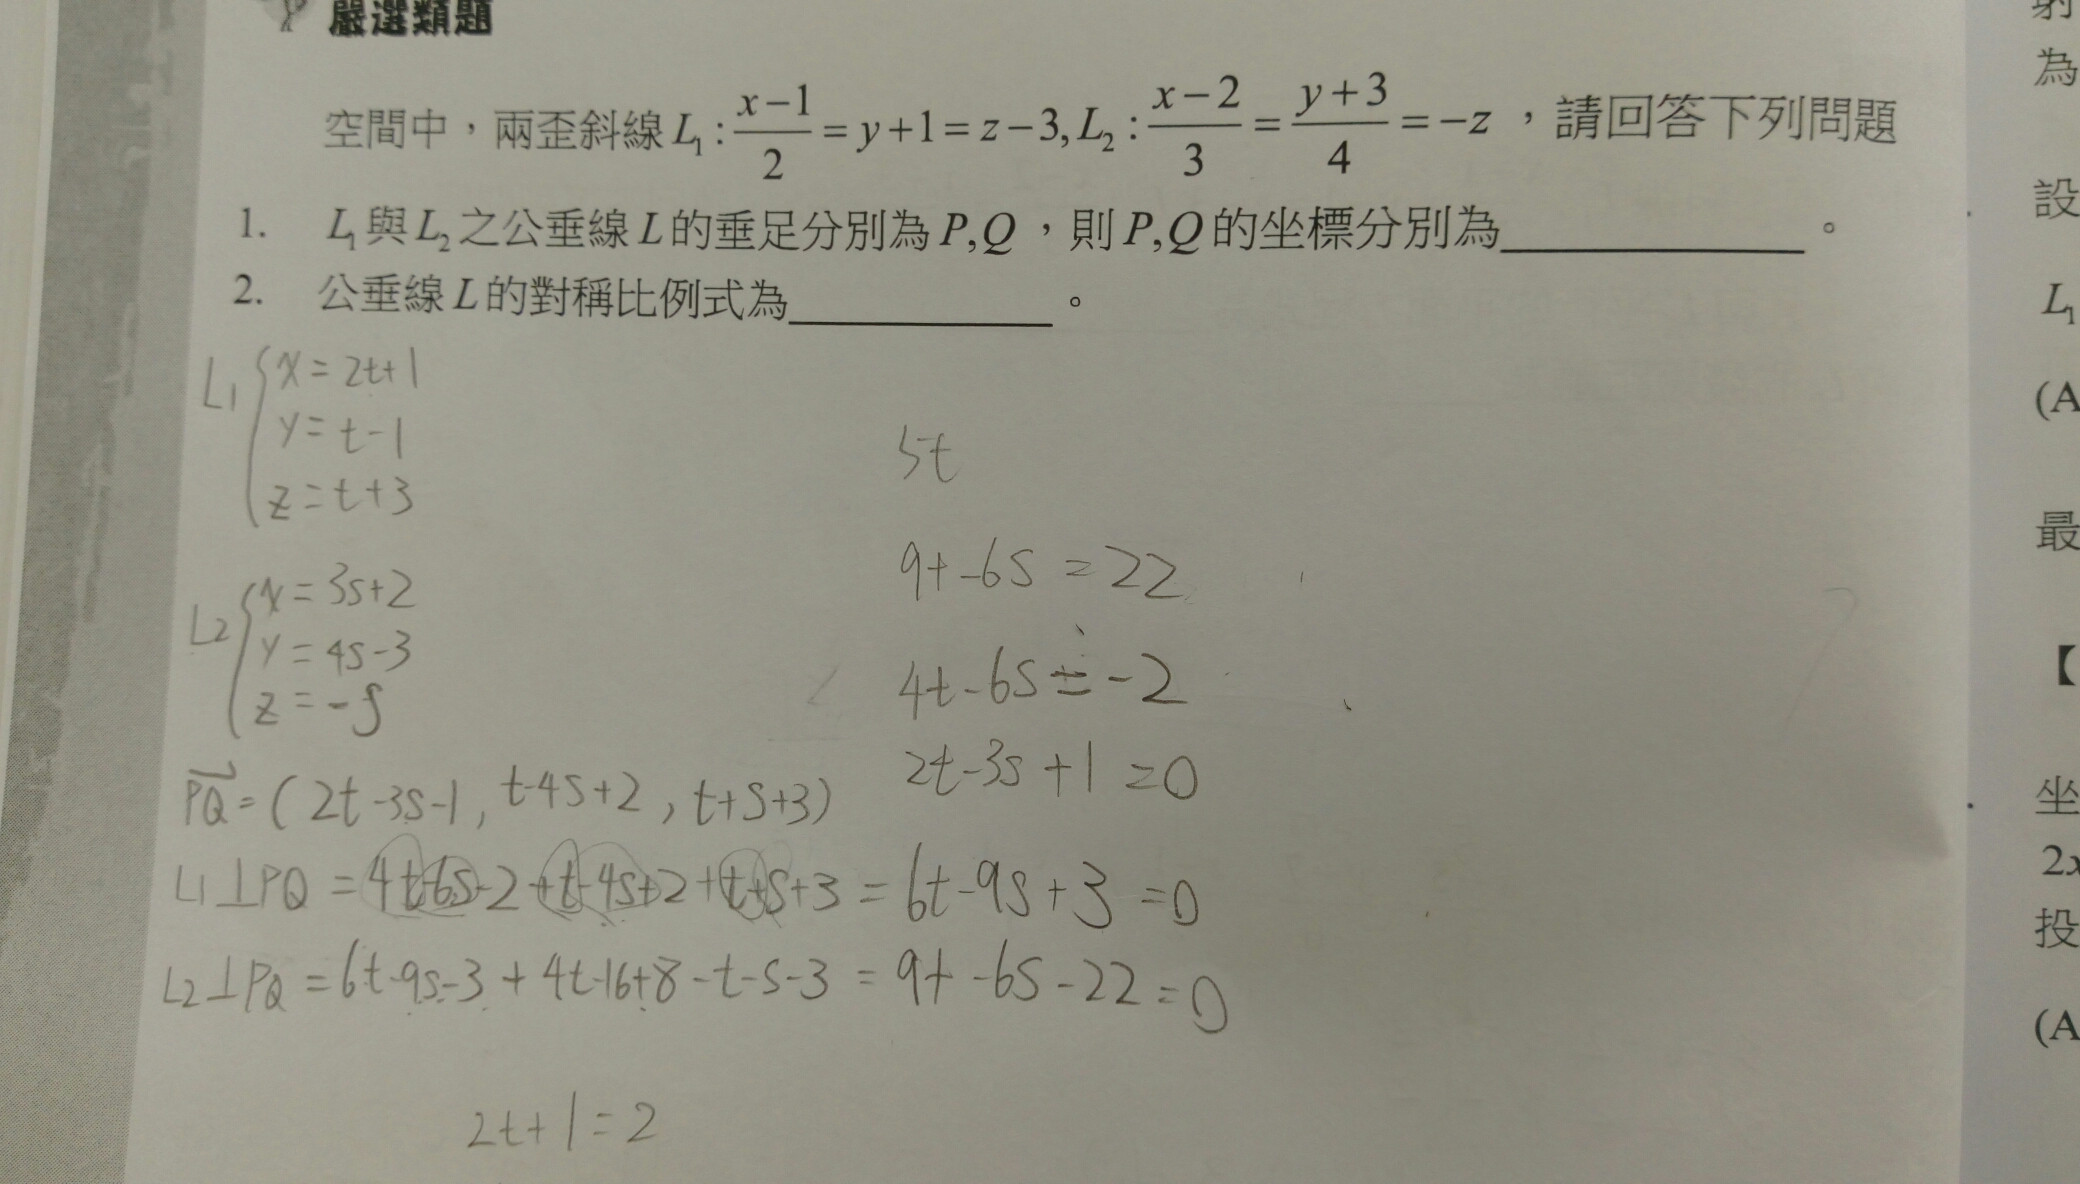 嚴選類題
空間中，兩歪斜線 L₁ : (x−1)/2 = y+1 = z−3, L₂ : (x−2)/3 = (y+3)/4 = −z ，請回答下列問題
1. L₁與L₂之公垂線L的垂足分別為P,Q，則P,Q的坐標分別為____________。
2. 公垂線L的對稱比例式為____________。
L1 { x = 2t+1
y = t-1
z = t+3
L2 { x = 3s+2
y = 4s-3
z = -s
PQ = (2t-3s-1, t-4s+2, t+s+3)
L1⊥PQ = 4t-6s-2+t-4s+2+t+s+3 = 6t-9s+3 = 0
L2⊥PQ = 6t-9s-3+4t-16+8-t-s-3 = 9t-6s-22 = 0
2t+1=2
5t
9t-6s = 22
4t-6s = -2
2t-3s+1 = 0
射
為
設
L₁
(A
最
【
坐
2x
投
(A